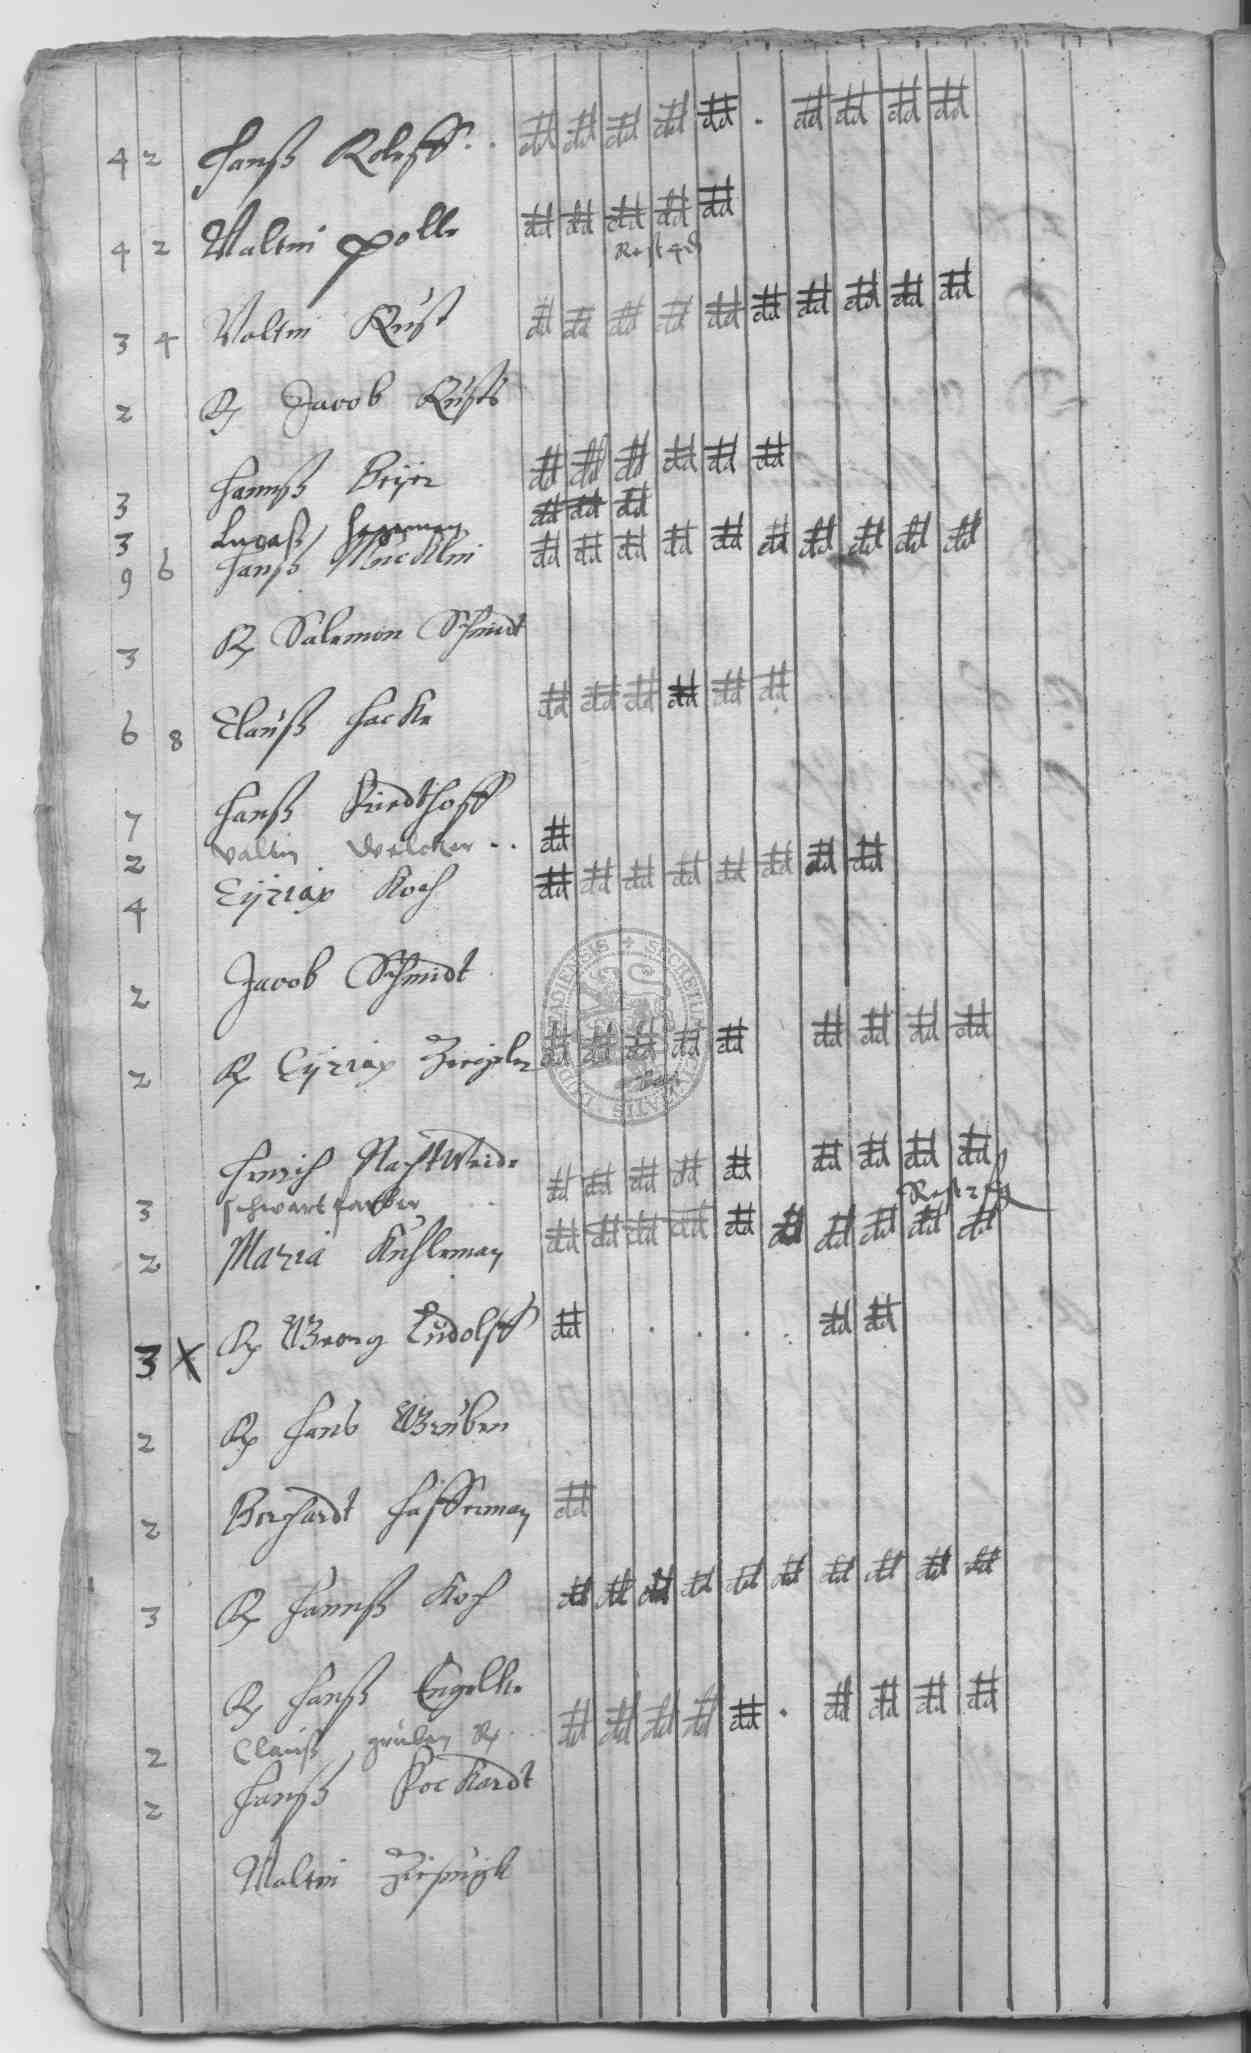 4 2 Hanß Roleff
4 2 Valtin Polle dd dd dd dd dd
Rest 4 d
3 4 Valtin Rust dd dd dd dd dd dd dd dd dd dd
2 R Jacob Rusts
3 Hannß Beyer dd dd dd dd dd dd
3 Lucaß Hegeman dd dd dd
9 6 Hanß dd dd dd dd dd dd dd dd dd dd
3 R Salomon Schmidt
6 8 Clauß Hacke dd dd dd dd dd dd
7 Hanß Riedthoff
2 Valtin Welcker dd
4 Cyriax Koch dd dd dd dd dd dd dd dd
2 Jacob Schmidt
2 R Cyriax Ziegler dd dd dd dd dd dd dd dd dd
Henrich Nachtweide dd dd dd dd dd dd dd dd dd
3 schwartfarber Rest 2
2 Maria Kuhleman dd dd dd dd dd dd dd dd dd dd
3 X R Georg Ludolff dd dd dd
2 R Hans Gruben
2 Borchardt Hasseman dd
3 R Hannß Koch dd dd dd dd dd dd dd dd dd dd
R Hanß Engelke dd dd dd dd dd dd dd dd dd
2 Clauß gruben R
2 Hanß Kockardt
Valtin
SECRETUM